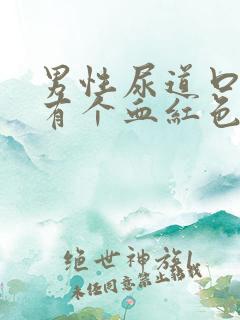 男性尿道口
有个血红色
绝世神族l
未经同意禁止转载